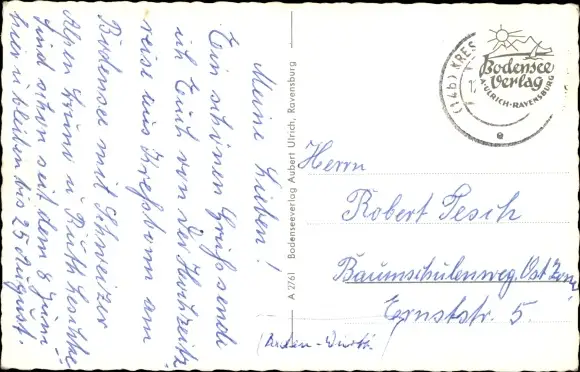 Meine Lieben!
Ein schönen Gruß sende
ich Euch von der Hochzeits
reise aus Kreßbronn am
Bodensee mit Schweizer
Alpen Heinz u Ruth
sind schon seit dem 8
hier u bleiben bis 25 August.
A 2761 Bodenseeverlag Aubert Ulrich, Ravensburg
(14b) KRES
Bodensee
Verlag
A·ULRICH·RAVENSBURG
Herrn
Robert Pesch
Baumschulenweg, Ost Zone
Ernststr. 5.
(Baden-Württ.